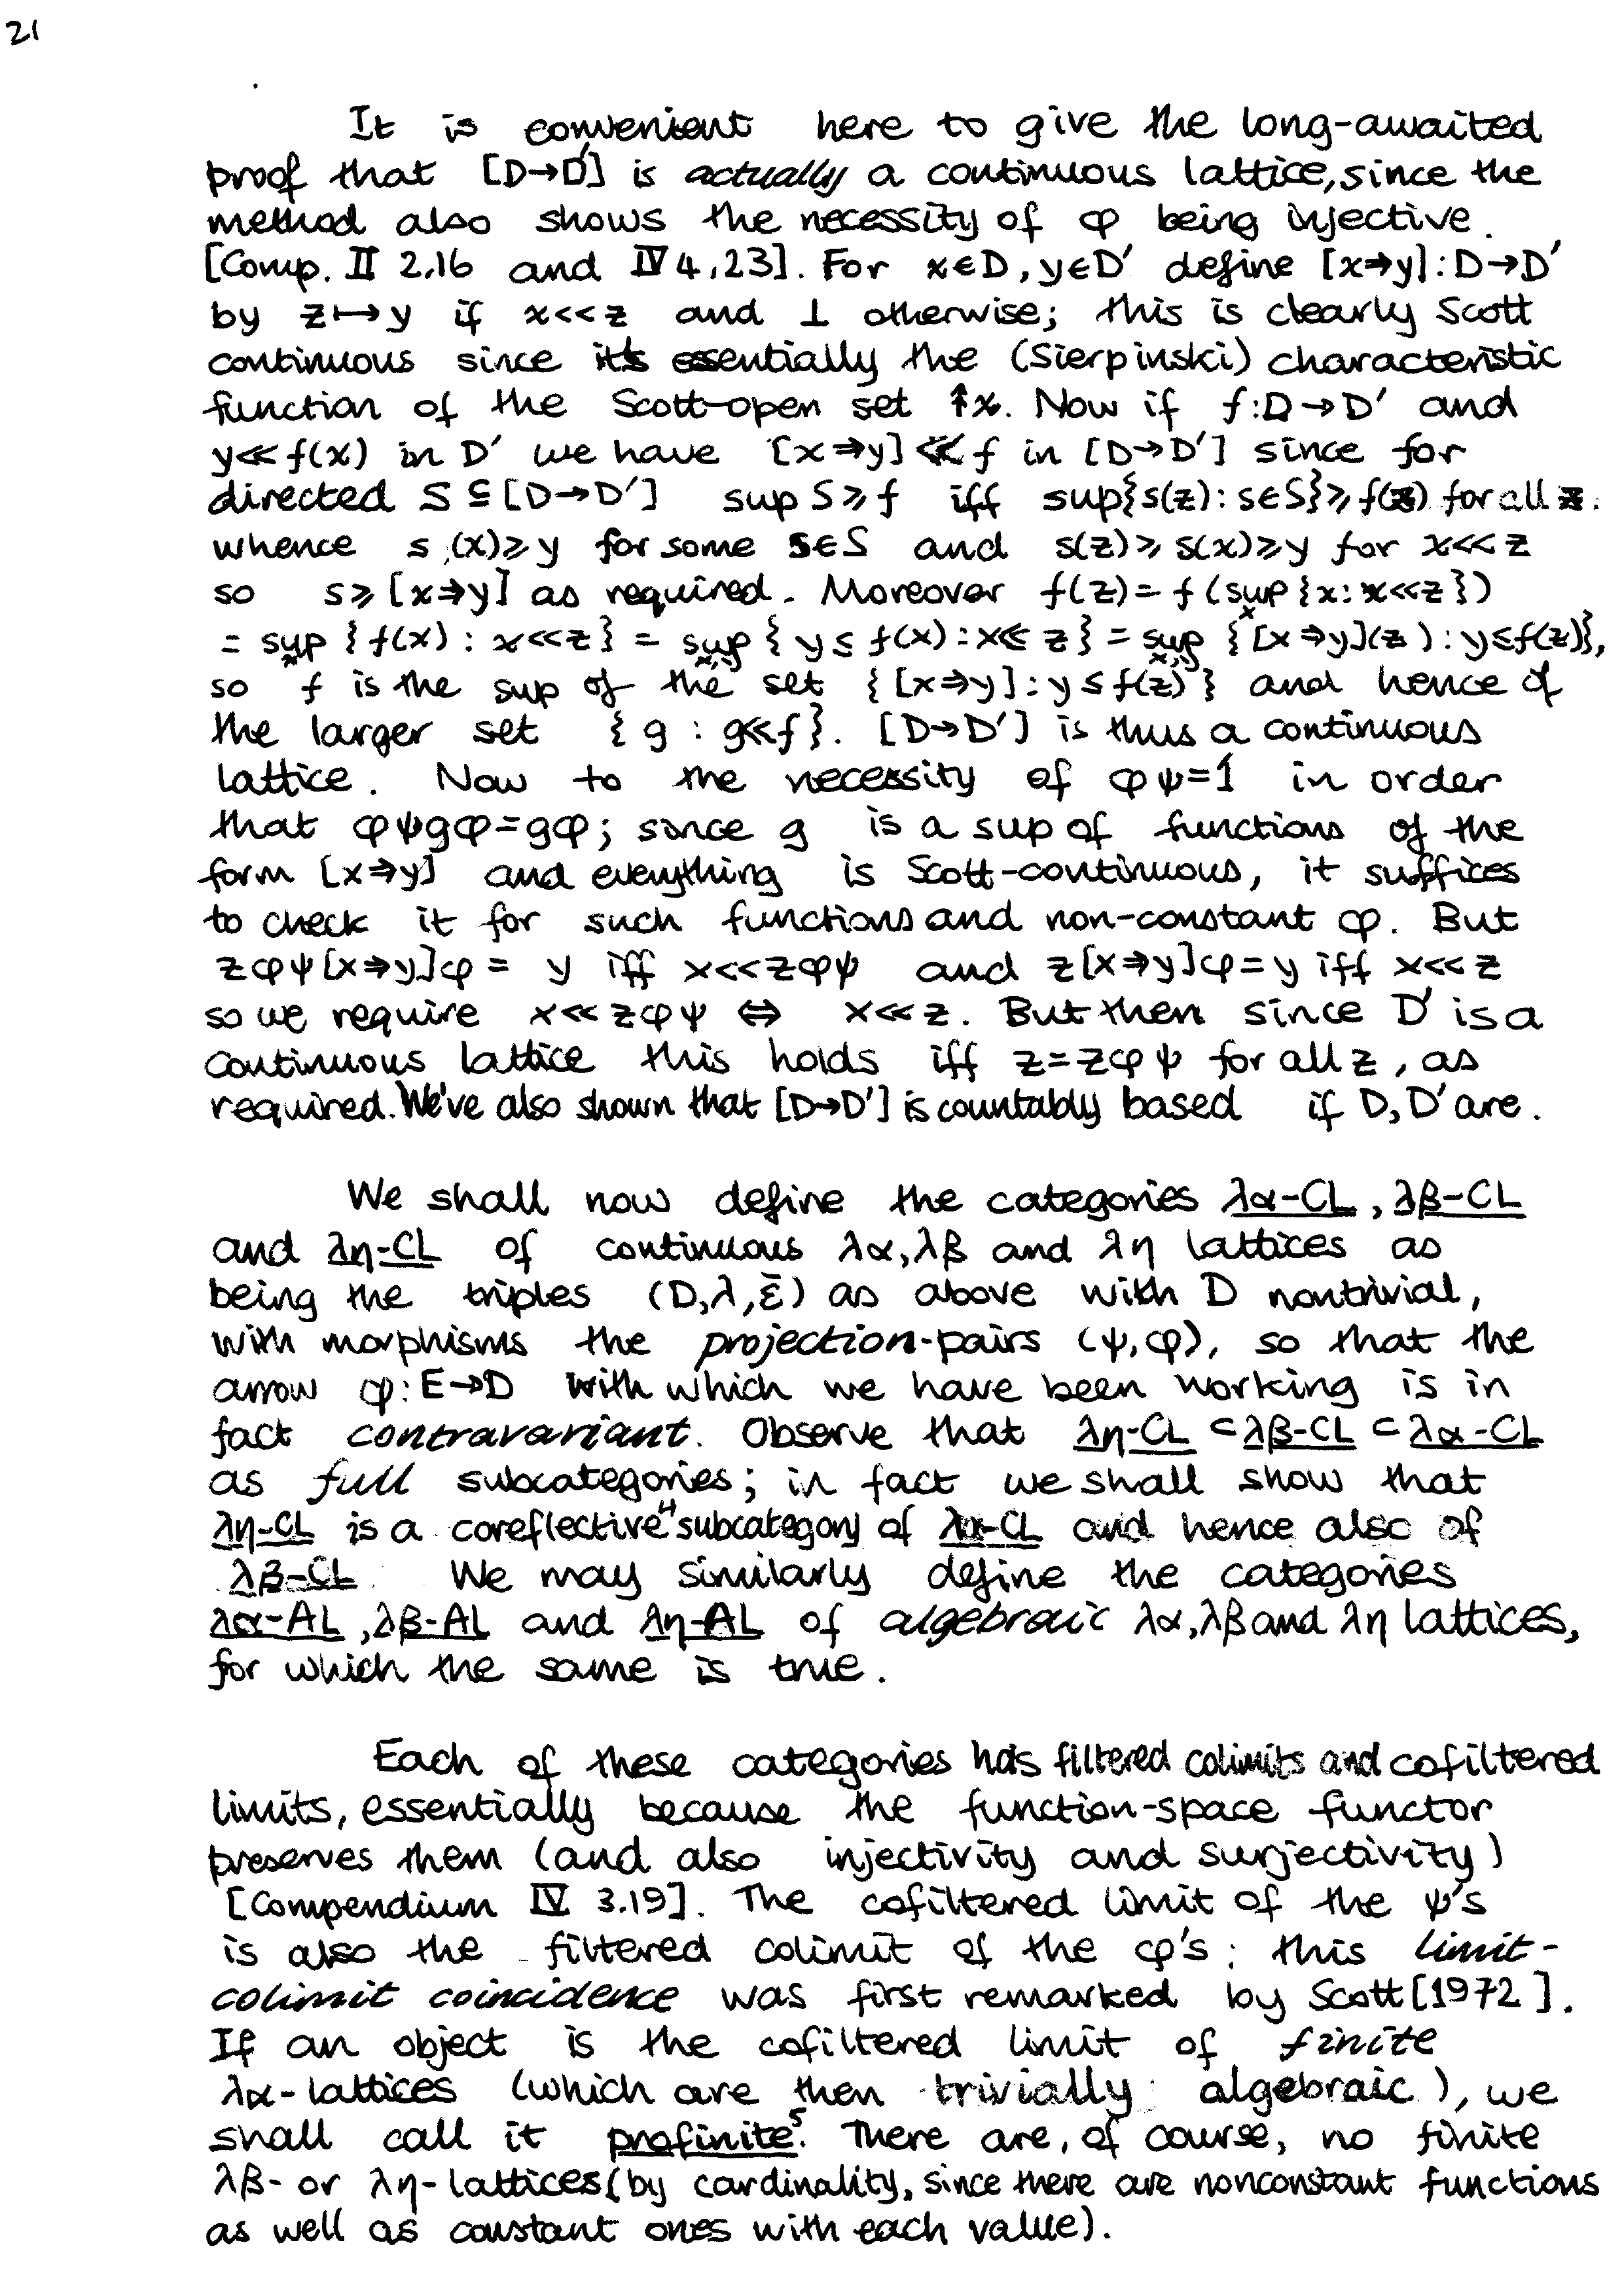 21
It is convenient here to give the long-awaited
proof that [D→D'] is actually a continuous lattice, since the
method also shows the necessity of φ being injective.
[Comp. II 2.16 and IV 4.23]. For x∈D, y∈D' define [x⇒y]:D→D'
by z↦y if x<<z and ⊥ otherwise; this is clearly Scott
continuous since it's essentially the (Sierpinski) characteristic
function of the Scott-open set ↟x. Now if f:D→D' and
y≪f(x) in D' we have [x⇒y]≪f in [D→D'] since for
directed S⊆[D→D'] sup S⩾f iff sup{s(z): s∈S}⩾f(z) for all z.
whence s(x)⩾y for some s∈S and s(z)⩾s(x)⩾y for x<<z
so s⩾[x⇒y] as required. Moreover f(z)=f(sup_x{x: x<<z})
= sup_x{f(x): x<<z} = sup_{x,y}{y≤f(x): x≪z} = sup_{x,y}{[x⇒y](z): y≤f(z)},
so f is the sup of the set {[x⇒y]: y≤f(z)} and hence of
the larger set {g : g≪f}. [D→D'] is thus a continuous
lattice. Now to the necessity of φψ=1 in order
that φψgφ=gφ; since g is a sup of functions of the
form [x⇒y] and everything is Scott-continuous, it suffices
to check it for such functions and non-constant φ. But
zφψ[x⇒y]φ = y iff x<<zφψ and z[x⇒y]φ=y iff x<<z
so we require x<<zφψ ⇔ x<<z. But then since D' is a
continuous lattice this holds iff z=zφψ for all z, as
required. We've also shown that [D→D'] is countably based if D,D' are.
We shall now define the categories λα-CL, λβ-CL
and λη-CL of continuous λα, λβ and λη lattices as
being the triples (D,λ,ε̄) as above with D nontrivial,
with morphisms the projection-pairs (ψ,φ), so that the
arrow φ:E→D with which we have been working is in
fact contravariant. Observe that λη-CL ⊂ λβ-CL ⊂ λα-CL
as full subcategories; in fact we shall show that
λη-CL is a coreflective⁴ subcategory of λα-CL and hence also of
λβ-CL. We may similarly define the categories
λα-AL, λβ-AL and λη-AL of algebraic λα, λβ and λη lattices,
for which the same is true.
Each of these categories has filtered colimits and cofiltered
limits, essentially because the function-space functor
preserves them (and also injectivity and surjectivity)
[Compendium IV 3.19]. The cofiltered limit of the ψ's
is also the filtered colimit of the φ's: this limit-
colimit coincidence was first remarked by Scott [1972].
If an object is the cofiltered limit of finite
λα-lattices (which are then trivially algebraic), we
shall call it profinite⁵. There are, of course, no finite
λβ- or λη-lattices (by cardinality, since there are nonconstant functions
as well as constant ones with each value).